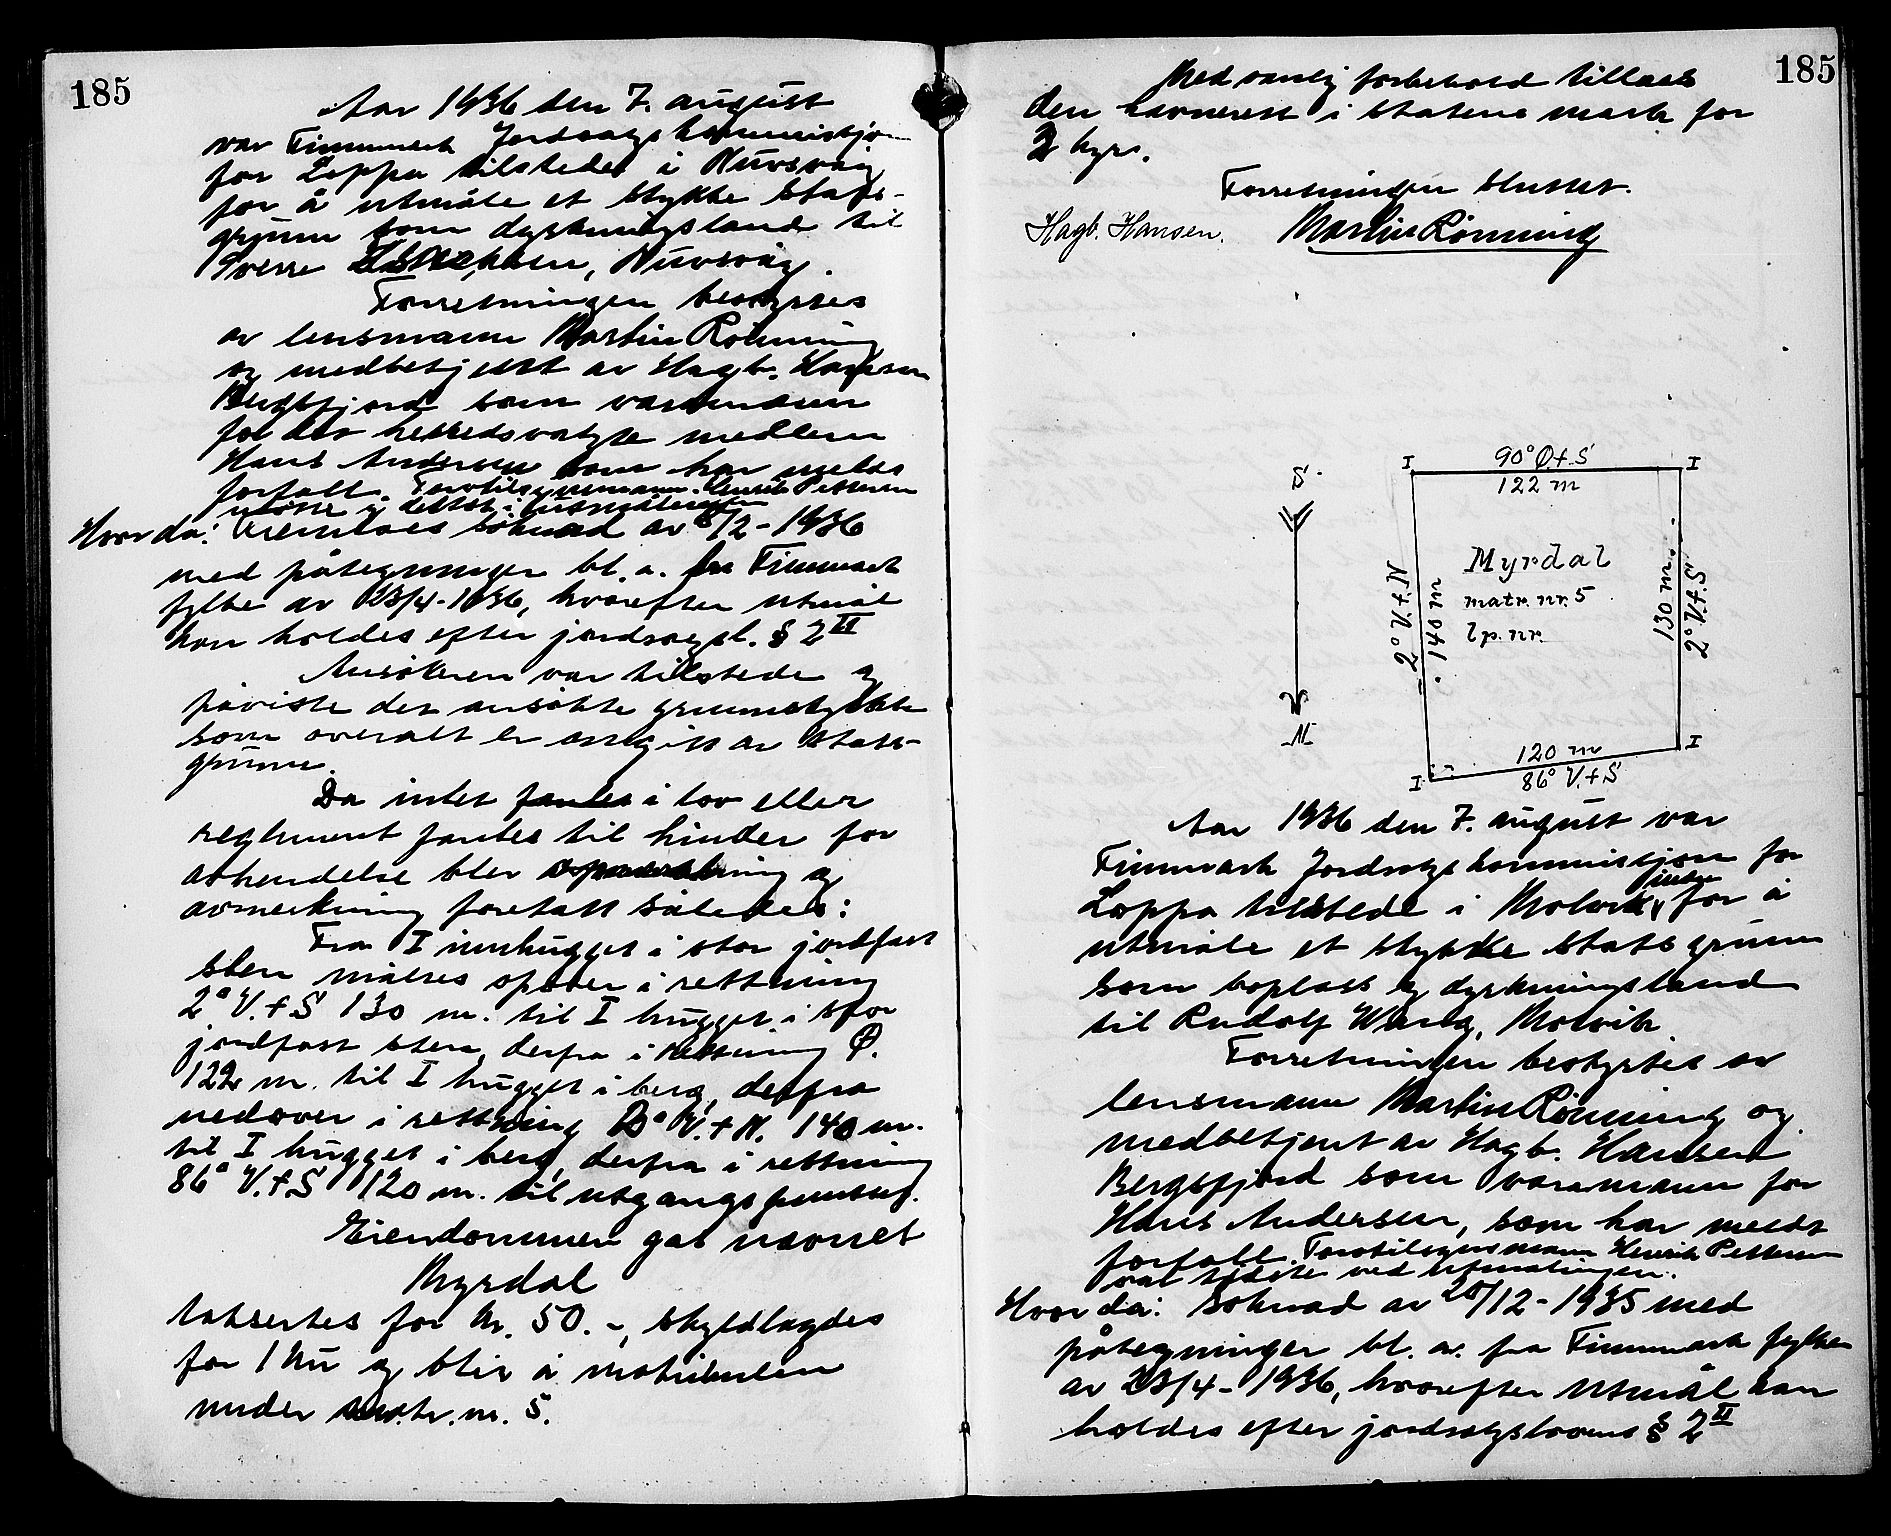 185
Aar 1936 den 7. august
var Finnmark Jordsalgskommisjon
for Loppa tilstede i Nuvsvåg
for å utmåle et stykke stats-
grunn som dyrkningsland til
Sverre Nuvsvåg.
Forretningen bestyrtes
av lensmann Martin Rönning
og medbetjent av Hagb. Hansen
Bergsfjord som varamann
for det herredsvalgte medlem
Hans Andersen som har meldt
forfall. Forstilsynsmann Henrik Pettersen
møtte i
Hvorda: Fremlaes söknad av /2-1936
med påtegninger bl. a. fra Finnmark
fylke av 23/4-1936, hvorefter utmål
kan holdes efter jordsalgsl. § 2 II
Ansökeren var tilstede og
påviste det ansökte grunnstykke
som overalt er omgitt av stats-
grunn.
Da intet i lov eller
reglement fantes til hinder for
avhendelse blev opmåling og
avmerkning foretatt således:
Fra I innhugget i stor jordfast
sten måles opover i rettning
2° V.t.S 130 m. til I hugget i stor
jordfast sten, derfra i rettning Ø.
122 m. til I hugget i berg, derfra
nedover i rettning 2° V.t.N. 140 m.
til I hugget i berg, derfra i rettning
86° V.t.S 120 m. til utgangspunktet.
Eiendommen gas navnet
Myrdal
taksertes for kr. 50.-, skyldlagdes
for 1 øre og blir å matrikulere
under matr. nr. 5.
185
Med vanlig forbehold tillaes
den havnerett i statens mark for
2 kyr.
Forretningen sluttet.
Hagb. Hansen. Martin Rönning
S.
N.
I 90° Ø t S I
122 m
2° V.t.N
140 m
Myrdal
matr. nr. 5
lp. nr.
130 m.
2° V.t.S
I
120 m
I 86° V.t.S
Aar 1936 den 7. august var
Finnmark Jordsalgskommisjon for
Loppa tilstede i Molvik indre for å
utmåle et stykke statsgrunn
som boplass og dyrkningsland
til Rudolf Warg, Molvik
Forretningen bestyrtes av
lensmann Martin Rönning og
medbetjent av Hagb. Hansen
Bergsfjord som varamann for
Hans Andersen, som har meldt
forfall. Forstilsynsmann Henrik Pettersen
var tilstede ved utmålingen.
Hvorda: söknad av 28/12-1935 med
påtegninger bl. a. fra Finnmark fylke
av 23/4-1936, hvorefter utmål kan
holdes efter jordsalgslovens § 2 II